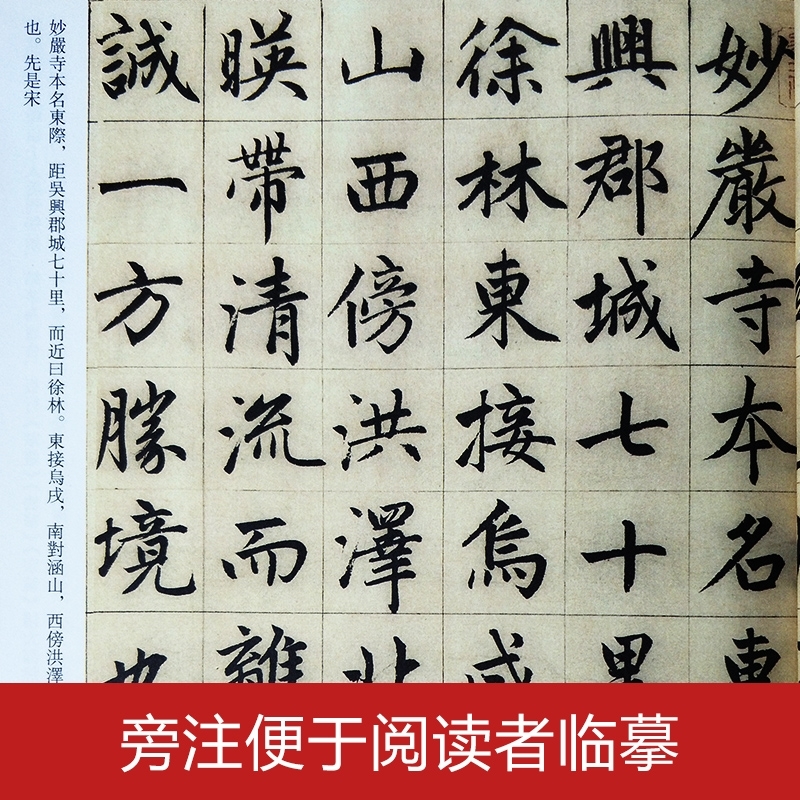 妙嚴寺本名東
興郡城七十里
徐林東接烏
山西傍洪澤北
暎帶清流而離
誠一方勝境也
妙嚴寺本名東際，距吳興郡城七十里，而近曰徐林。東接烏戌，南對涵山，西傍洪澤
也。先是宋
旁注便于阅读者临摹